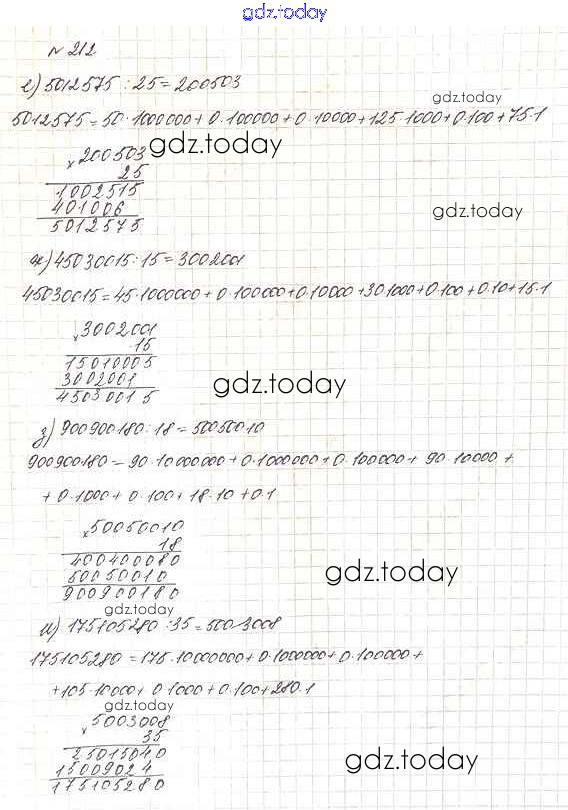 gdz.today
№ 212
е) 5012575 : 25 = 200503
gdz.today
5012575 = 50·1000000 + 0·100000 + 0·10000 + 125·1000 + 0·100 + 75·1
× 200503
gdz.today
25
1002515
401006
gdz.today
5012575
ж) 45030015 : 15 = 3002001
45030015 = 45·1000000 + 0·100000 + 0·10000 + 30·1000 + 0·100 + 0·10 + 15·1
× 3002001
15
15010005
3002001
gdz.today
45030015
з) 900900180 : 18 = 50050010
900900180 = 90·10000000 + 0·1000000 + 0·100000 + 90·10000 +
+ 0·1000 + 0·100 + 18·10 + 0·1
× 50050010
18
400400080
gdz.today
50050010
900900180
gdz.today
и) 175105280 : 35 = 5003008
175105280 = 175·10000000 + 0·1000000 + 0·100000 +
+ 105·10000 + 0·1000 + 0·100 + 280·1
× 5003008
35
25015040
gdz.today
15009024
175105280